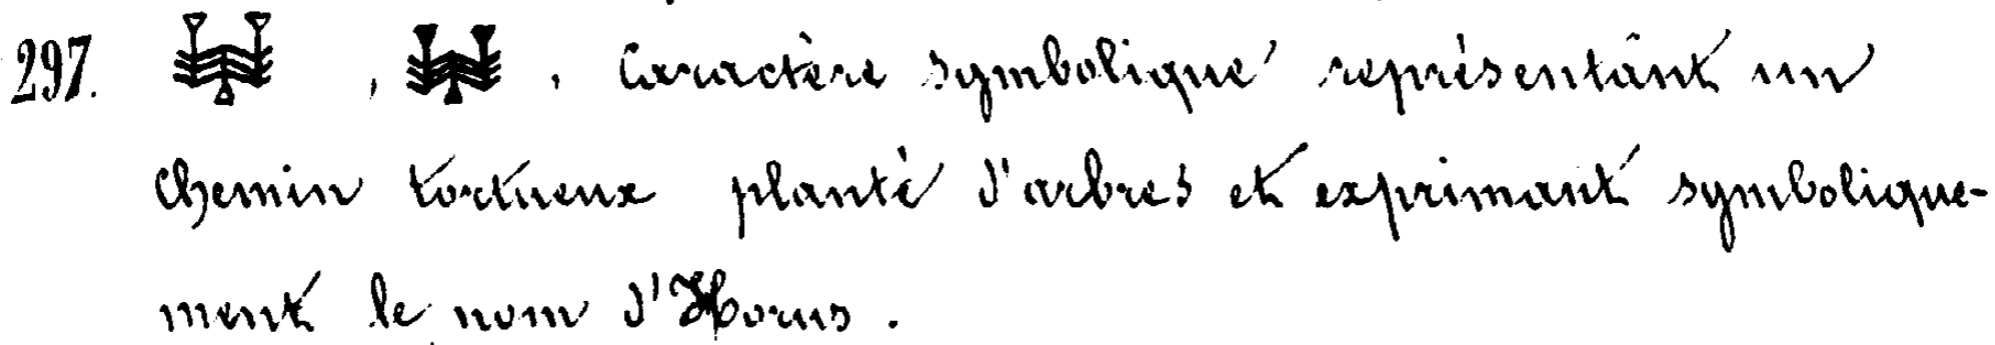 297. , . Caractère symbolique représentant un
chemin tortueux planté d'arbres et exprimant symbolique-
ment le nom d'Horus.